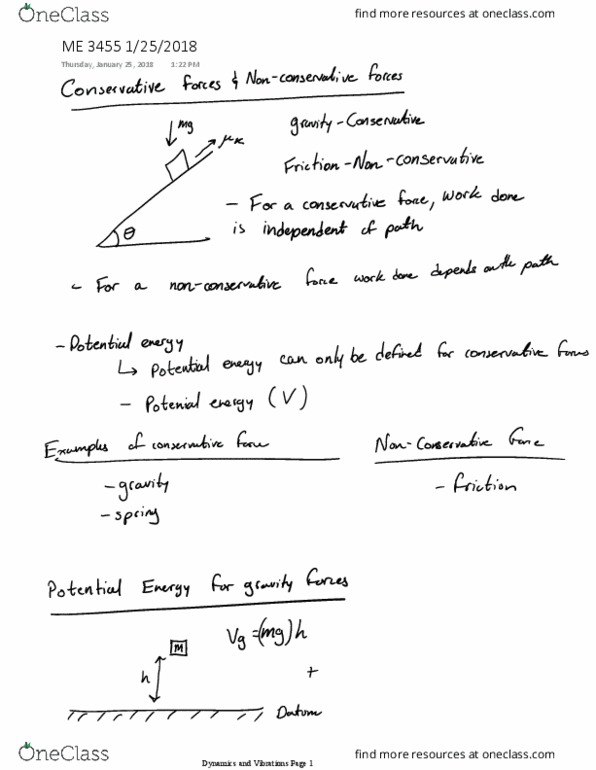 OneClass
find more resources at oneclass.com
ME 3455 1/25/2018
Thursday, January 25, 2018 1:22 PM
Conservative forces & Non-conservative forces
mg
μK
gravity - Conservative
Friction - Non - conservative
θ
- For a conservative force, work done
is independent of path
- For a non-conservative force work done depends on the path
- Potential energy
↳ potential energy can only be defined for conservative forces
- Potenial energy (V)
Examples of conservative force
Non-Conservative force
- gravity
- friction
- spring
Potential Energy for gravity forces
M
Vg = (mg)h
h
+
Datum
Dynamics and Vibrations Page 1
OneClass
find more resources at oneclass.com